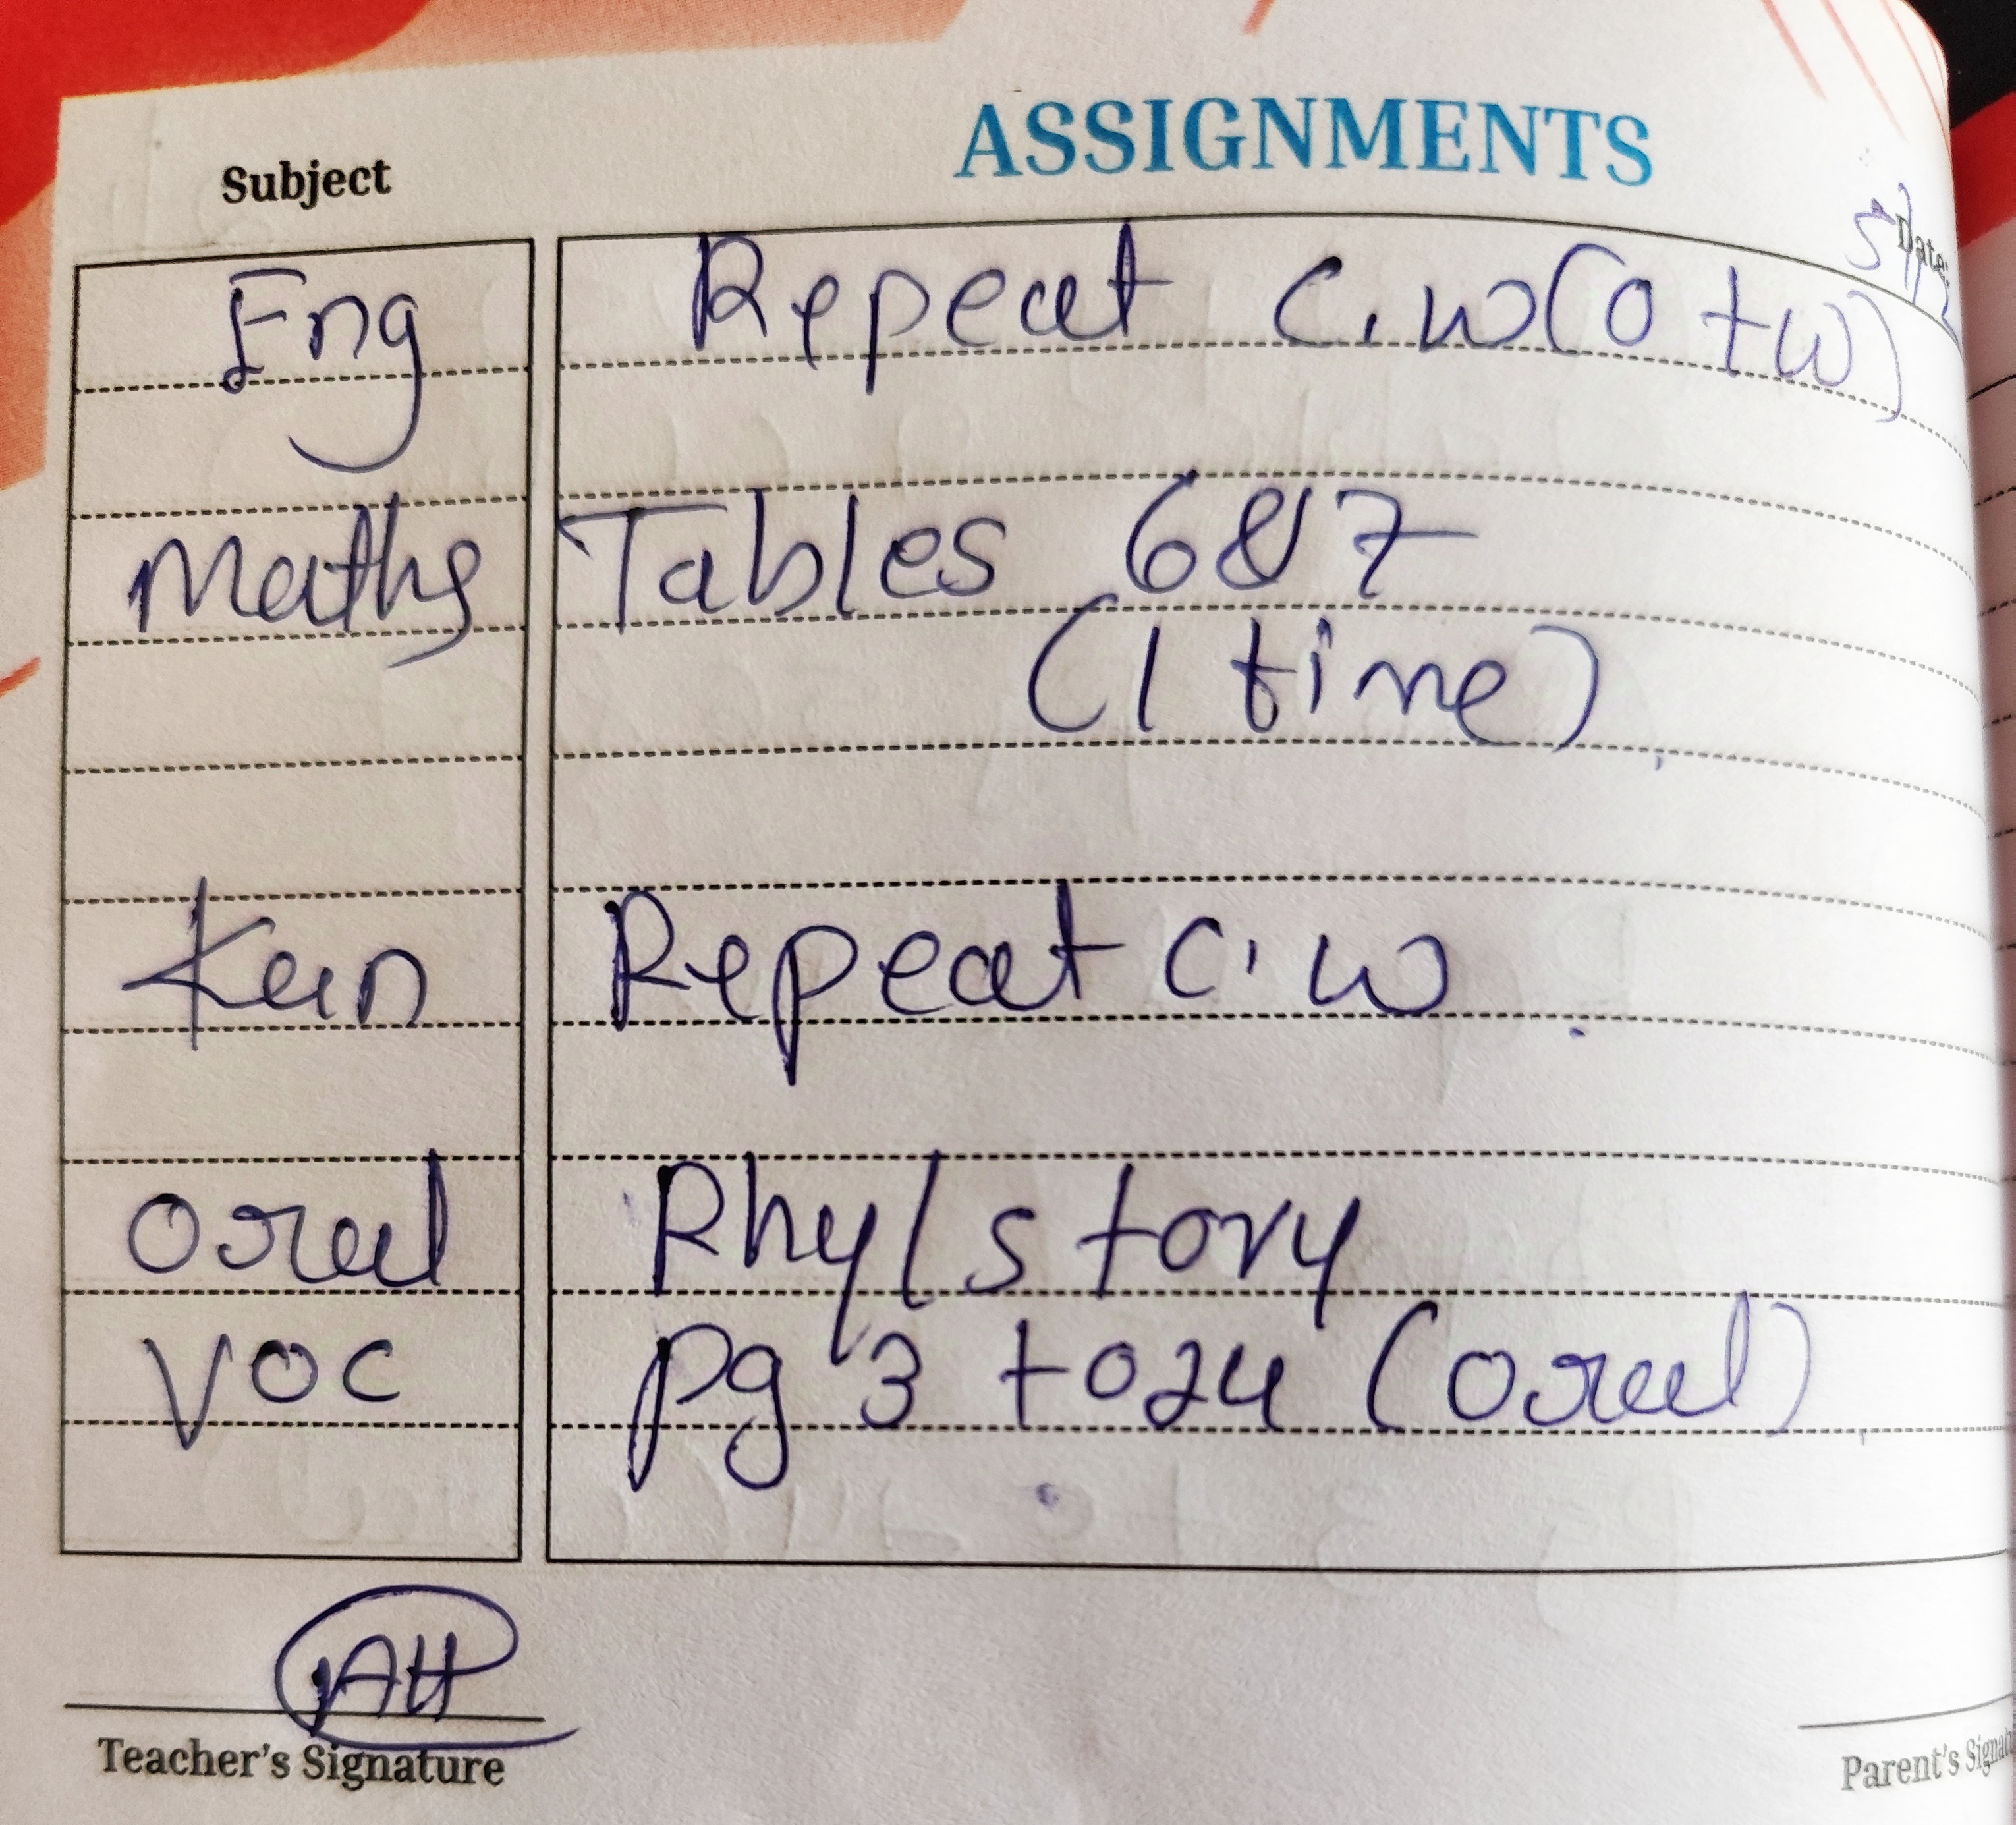 ASSIGNMENTS
Subject
Date:
Eng Repeat c.w(o+w)
Maths Tables 6&7
(1 time)
Kan Repeat c.w
Oral Rhy/story
Voc pg 3 to 24 (oral)
Teacher's Signature
Parent's